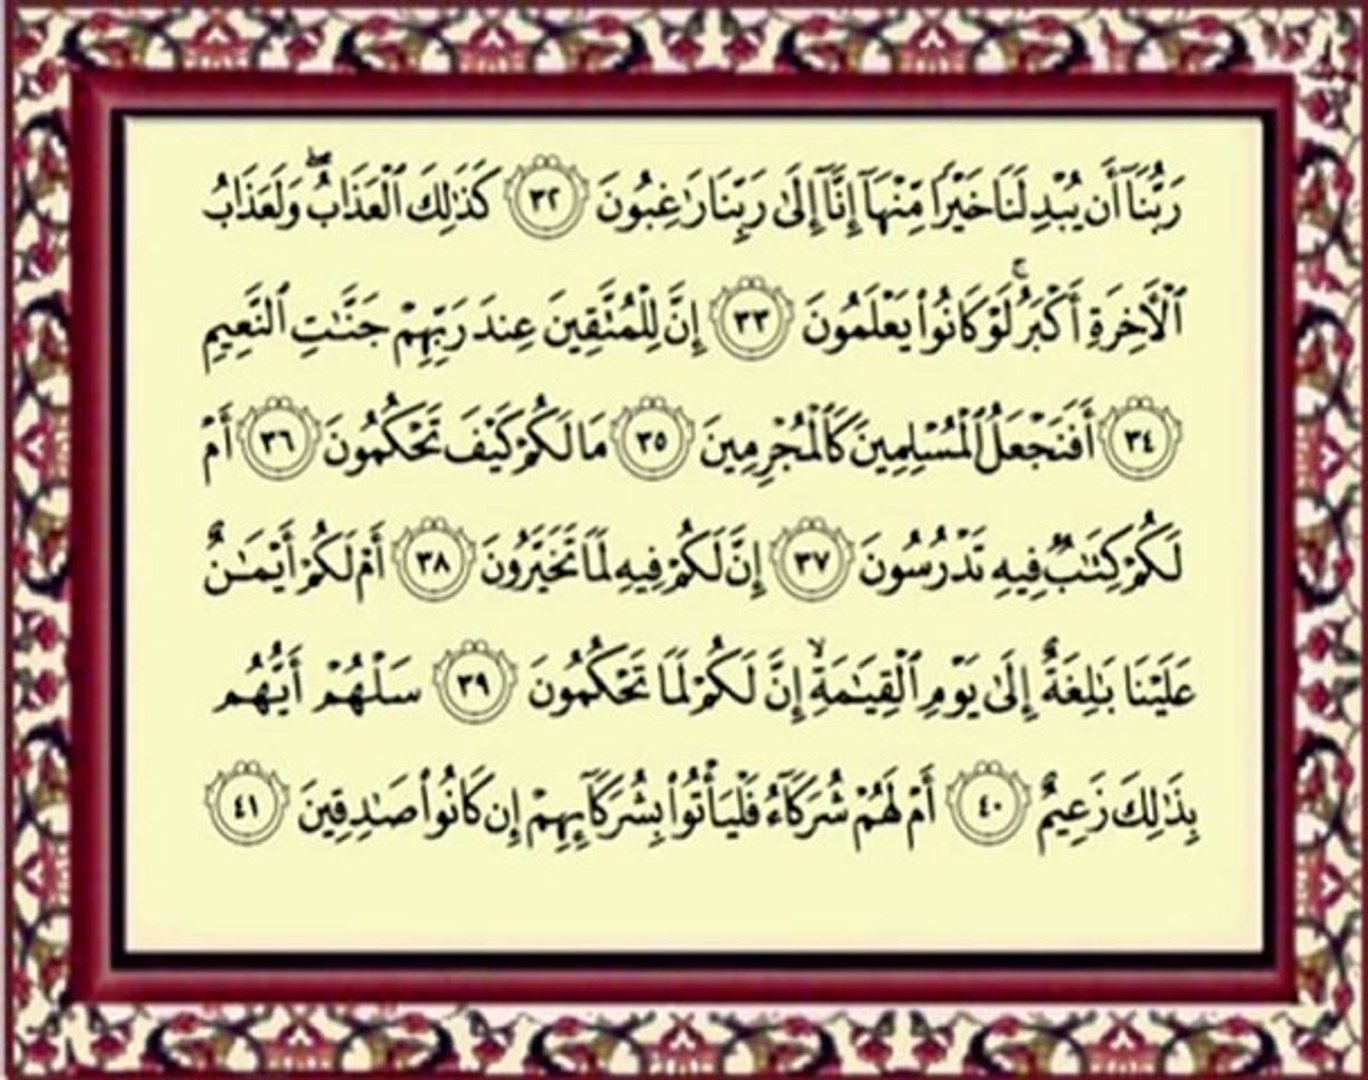 رَبُّنَآ أَن يُبْدِلَنَا خَيْرًا مِّنْهَآ إِنَّآ إِلَىٰ رَبِّنَا رَٰغِبُونَ ٣٢ كَذَٰلِكَ ٱلْعَذَابُ ۖ وَلَعَذَابُ
ٱلْأَخِرَةِ أَكْبَرُ ۚ لَوْ كَانُوا۟ يَعْلَمُونَ ٣٣ إِنَّ لِلْمُتَّقِينَ عِندَ رَبِّهِمْ جَنَّـٰتِ ٱلنَّعِيمِ
٣٤ أَفَنَجْعَلُ ٱلْمُسْلِمِينَ كَٱلْمُجْرِمِينَ ٣٥ مَا لَكُمْ كَيْفَ تَحْكُمُونَ ٣٦ أَمْ
لَكُمْ كِتَـٰبٌ فِيهِ تَدْرُسُونَ ٣٧ إِنَّ لَكُمْ فِيهِ لَمَا تَخَيَّرُونَ ٣٨ أَمْ لَكُمْ أَيْمَـٰنٌ
عَلَيْنَا بَـٰلِغَةٌ إِلَىٰ يَوْمِ ٱلْقِيَـٰمَةِ ۙ إِنَّ لَكُمْ لَمَا تَحْكُمُونَ ٣٩ سَلْهُمْ أَيُّهُم
بِذَٰلِكَ زَعِيمٌ ٤٠ أَمْ لَهُمْ شُرَكَآءُ فَلْيَأْتُوا۟ بِشُرَكَآئِهِمْ إِن كَانُوا۟ صَـٰدِقِينَ ٤١